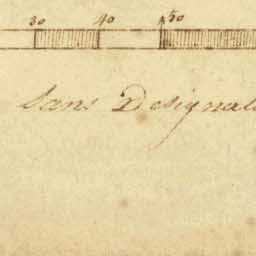 30 40 50
Sans Designat